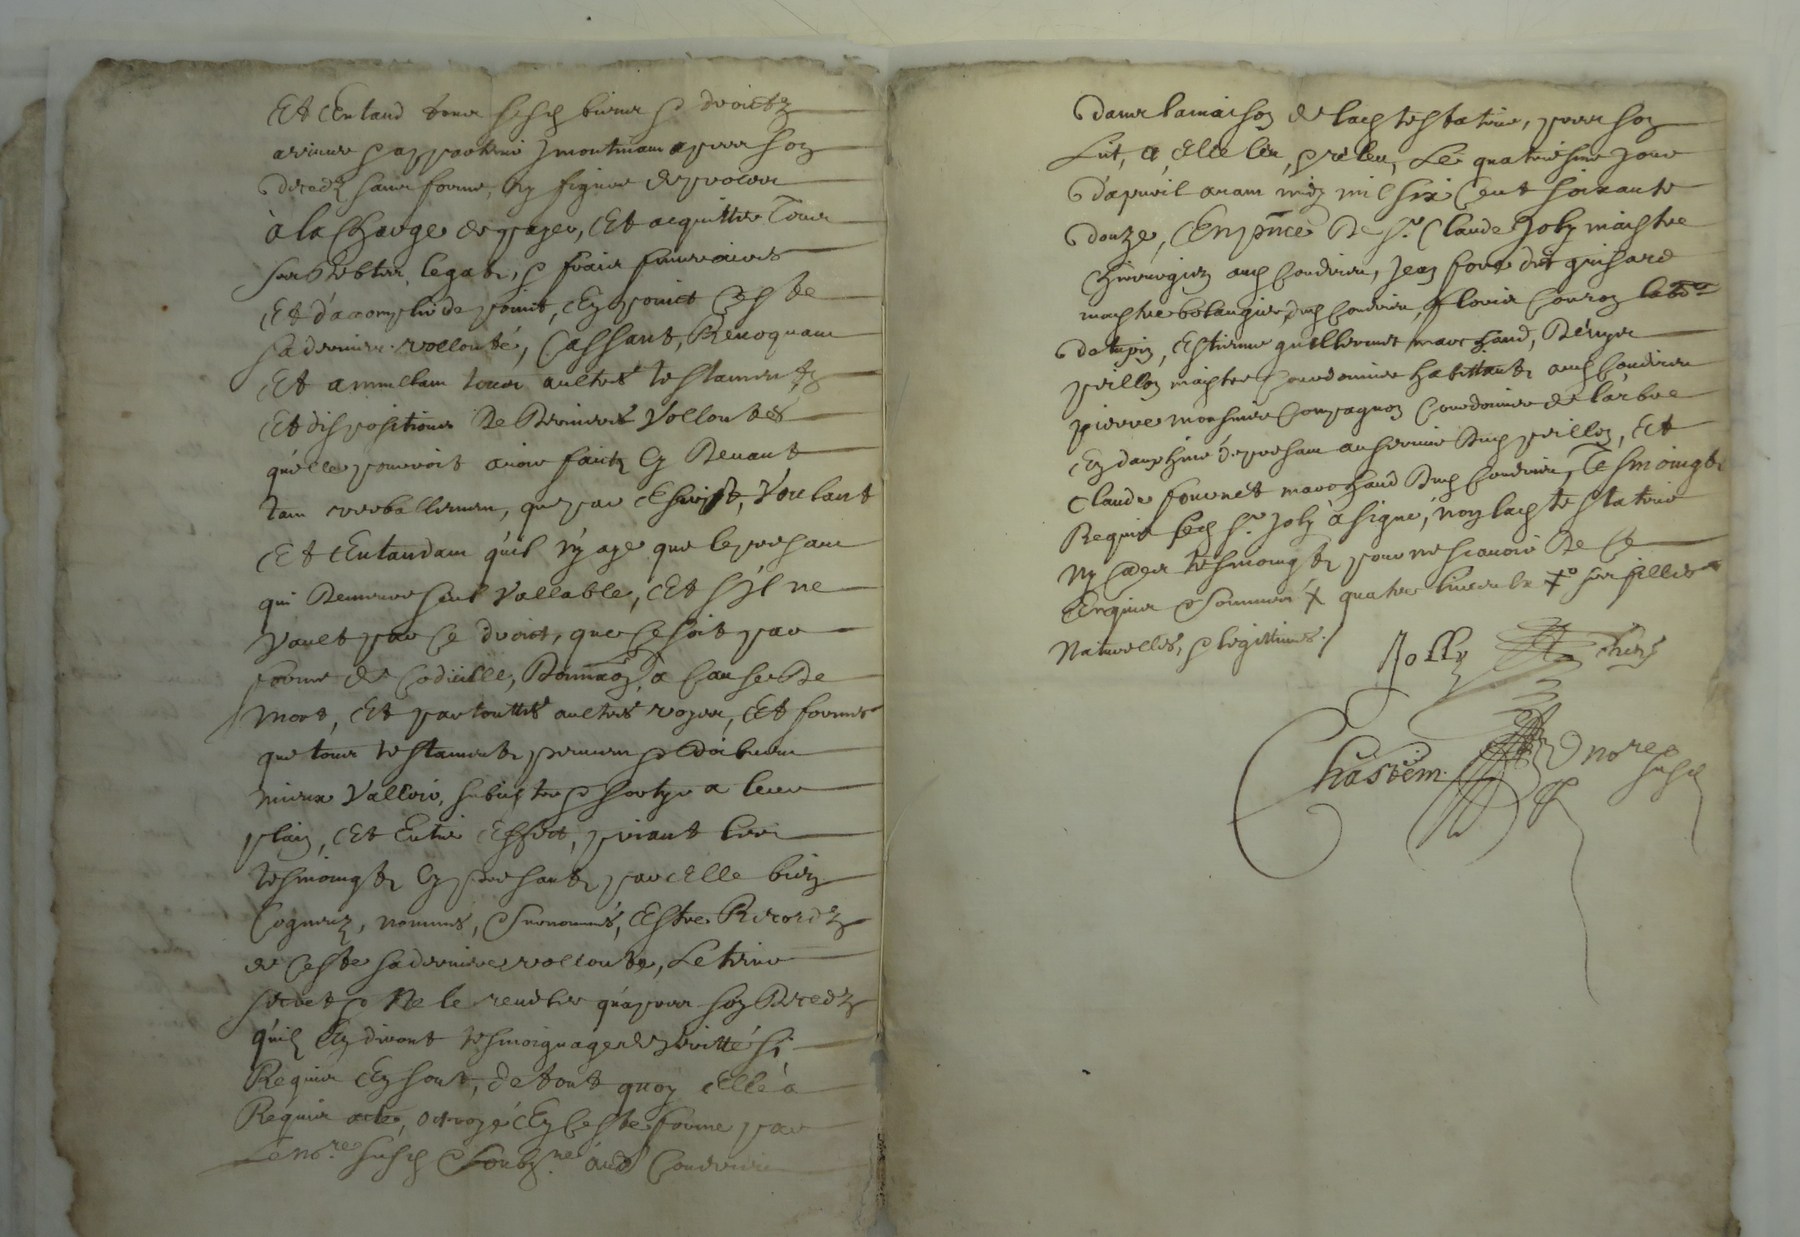 Et Entand tous sesd biens & droictz
advenir & appartenir Jmontinam apres son
deceds sans forme, ny figure de proces
à la Charge de payer, Et acquitter Tous
ses debtes, legatz, & fraix funeraires
Et d'accomplir de point, En point Ceste
sa derniere vollonté, Cassant, Revoquant
Et annullant tous aultres testamentz
Et dispositions de dernieres Vollontés
qu'elle pourroit avoir faictz Cy devant
tant verballement, que par Escript, Voulant
Et Entandam qu'il n'y aye que le presant
qui demeure seul Vallable, Et s'jl ne
Vault par ce droict, que ce soit par
forme de Codicille, donnaõn, a Cause de
mort, Et par touttes aultres voyes, Et formes
que tous testamentz peuvent & doibvent
mieux Valloir, subcister & sortyr a leur
plain, Et Entier Effect, priant les
tesmoingtz Cy presantz par Elle bien
Cogneuz, nommés, & surnommés, Estre Recordz
de Ceste sa derniere vollonté, Le tenir
secret & Ne le reveler qu'apres son decedz
qu'ilz En diront tesmoignage de veritté si
Requis En sont, de tout quoy Elle a
Requis acte, octroyé En Ceste forme par
Le no.re susd & soubz.né aud Condrieu
dans la maison de lad testatrice, pres son
Lict, a Elle leu, & releu, Le quatriesme jour
d'apvril avant midy mil six Cent soixante
douze, En pñce de s.r Claude Joly maistre
Chirurgien aud Condrieu, Jean dit guisard
maistre bolangier dud Condrieu, Couron
de tupin, Estienne guillermet marchand,
peillon maistre Courdonnier habittantz aud Condrieu
pierre Compagnon Courdonnier de
En dauphiné de presant au service dud peillon, Et
Claude fournet marchand dud Condrieu, Tesmoingtz
Requis led s.r Joly a signé, non lad testatrice
ny tesmoingtz pour ne scavoir de Ce
Enquis & sommés ╳ quatre livres ses filles
Naturelles, & legittimes./
Jolly
Chastem no.re susd